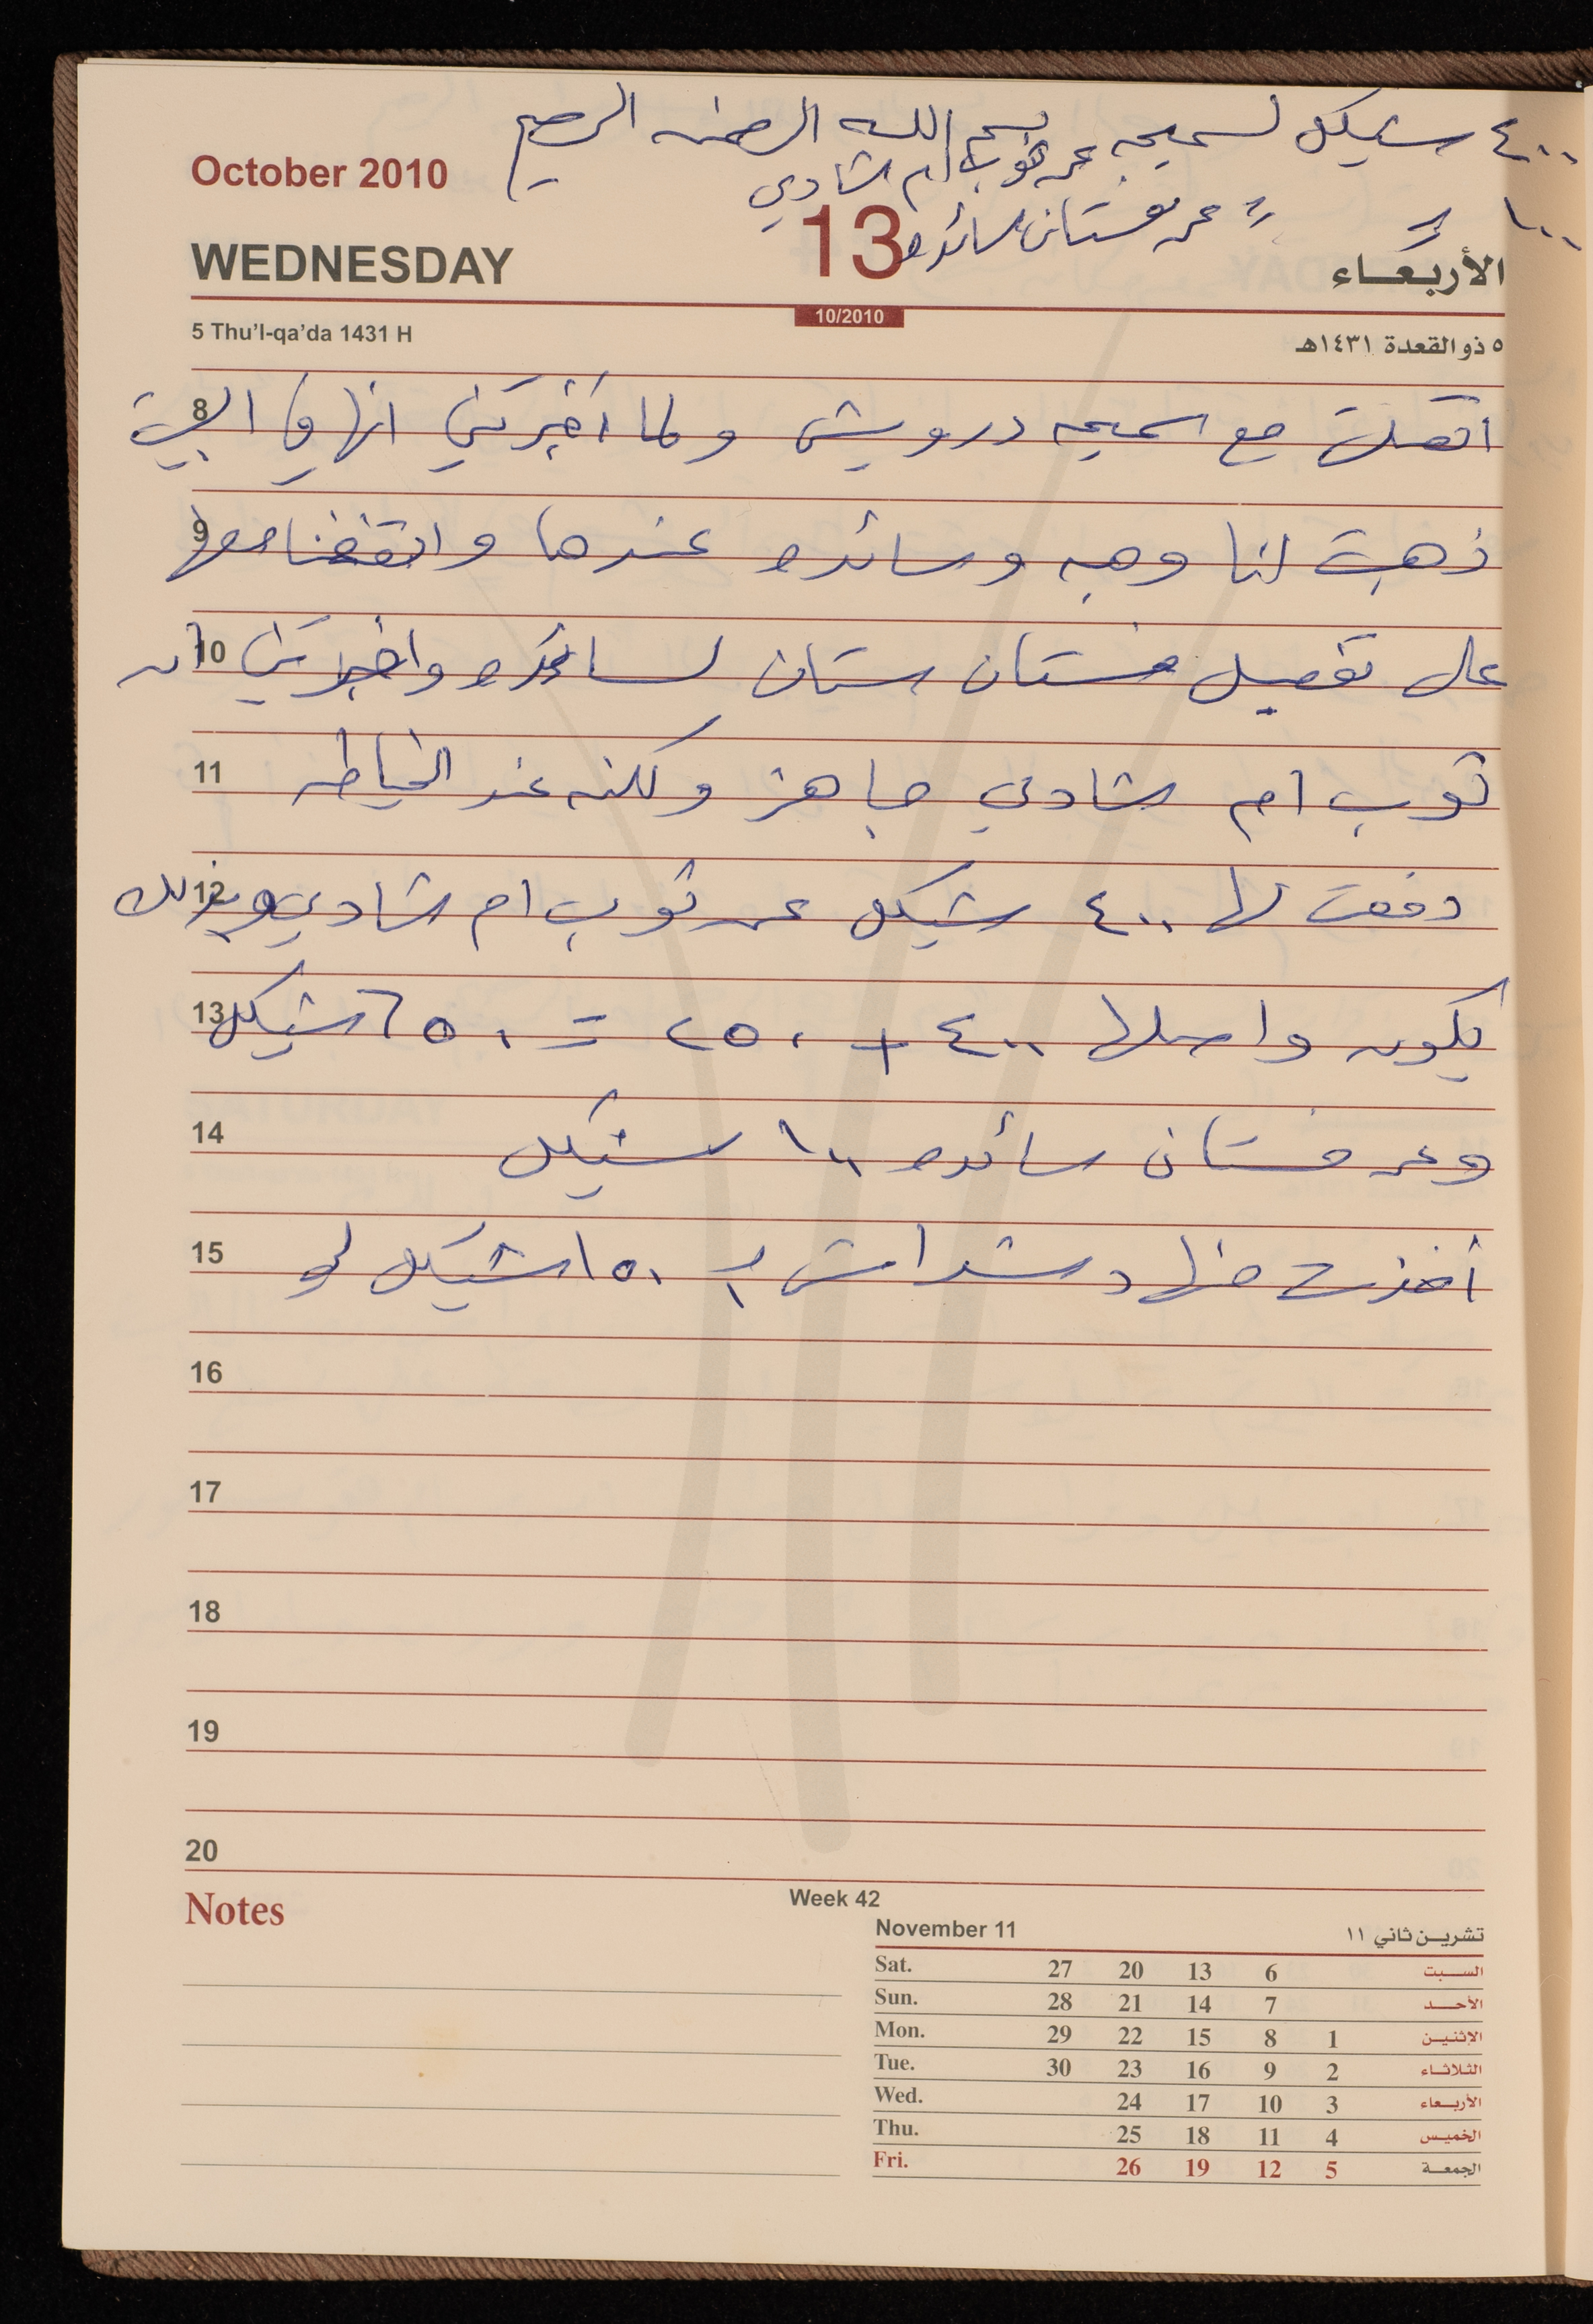 بسم الله الرحمن الرحيم
٤٠٠ شيكل لسميحه عن ثوب ام شادي
١٠٠ = = عن فستان سائده
October 2010
WEDNESDAY
13
الأربعاء
10/2010
5 Thu'l-qa'da 1431 H
٥ ذو القعدة ١٤٣١هـ
8 اتصلت مع سميحه درويش ولما أخبرتني انها في البيت
9 ذهبت انا وهبه وسائده عندها واتفقنا معها
10 على تفصيل فستان ستان لسائده واخبرتني ان
11 ثوب ام شادي جاهز ولكنه عند الخياطه
12 دفعت لها ٤٠٠ شيكل عن ثوب ام شادي وبذلك
13 يكون واصلها ٤٠٠ + ٢٥٠ = ٦٥٠ شيكل
14 وعن فستان سائده ١٠٠ شيكل
15 أخذت منها دشداش ب ١٥٠ شيكل لي
16
17
18
19
20
Notes
Week 42
November 11 تشرين ثاني ١١
Sat. 27 20 13 6 السبت
Sun. 28 21 14 7 الأحد
Mon. 29 22 15 8 1 الإثنين
Tue. 30 23 16 9 2 الثلاثاء
Wed. 24 17 10 3 الأربعاء
Thu. 25 18 11 4 الخميس
Fri. 26 19 12 5 الجمعة